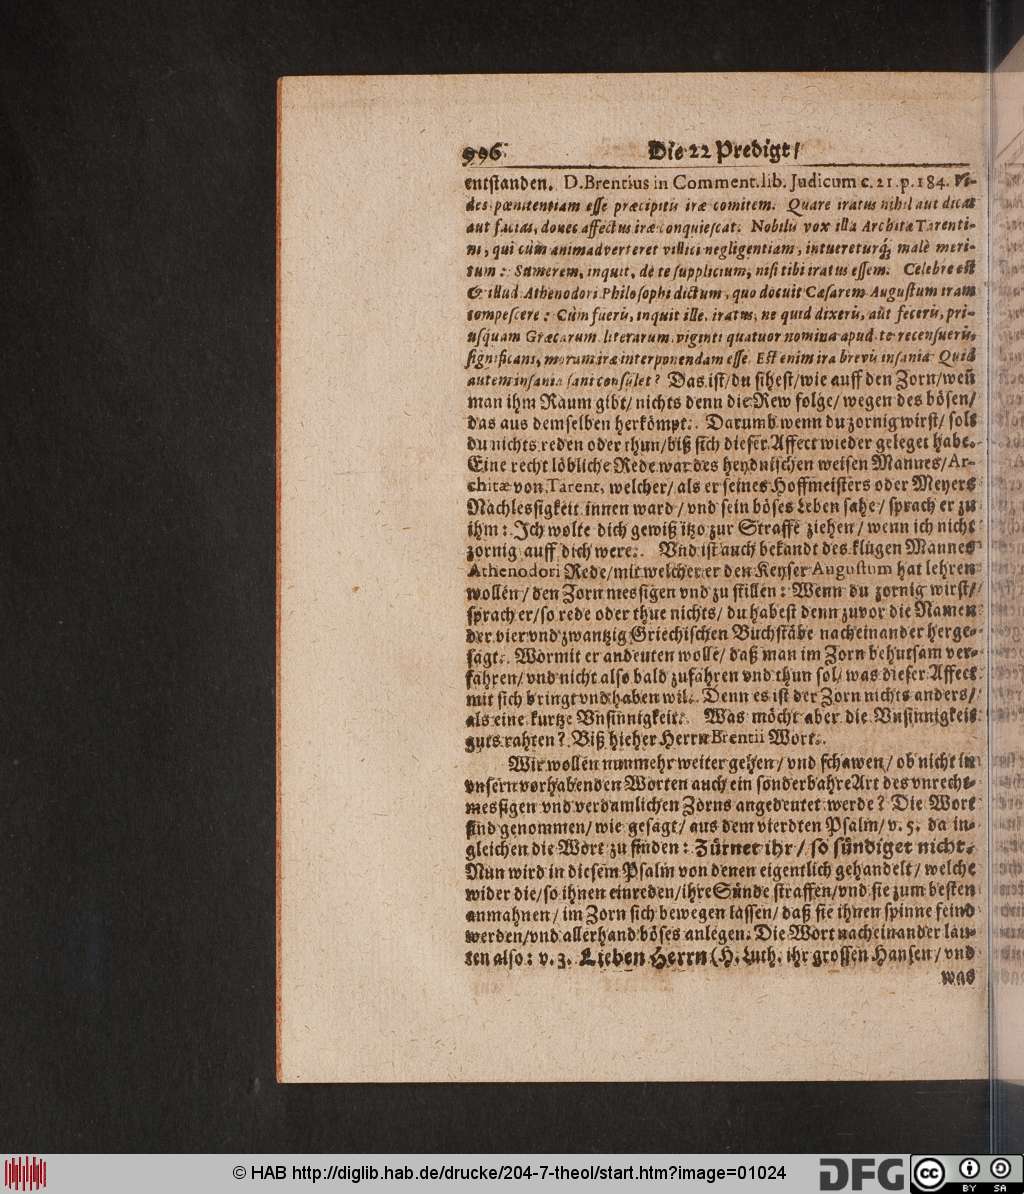 996 Die 22 Predigt/
entstanden. D. Brentius in Comment. lib. Judicum c. 21. p. 184. Vi-
des pœnitentiam esse præcipitis iræ comitem. Quare iratus nihil aut dicas
aut facias, donec affectus iræ conquiescat. Nobilis vox illa Architæ Tarenti-
ni, qui cùm animadverteret villici negligentiam, intuereturq́; malè meri-
tum: Sumerem, inquit, de te supplicium, nisi tibi iratus essem. Celebre est
& illud Athenodori Philosophi dictum, quo docuit Cæsarem Augustum iram
compescere: Cùm fueris, inquit ille, iratus, ne quid dixeris, aut feceris, pri-
usquam Græcarum literarum viginti quatuor nomina apud te recensueris,
significans, moram iræ interponendam esse. Est enim ira brevis insania. Quid
autem insania sani consulet? Das ist/du sihest/wie auff den Zorn/weñ
man ihm Raum gibt/ nichts denn die Rew folge/ wegen des bösen/
das aus demselben herkömpt. Darumb wenn du zornig wirst/ solt
du nichts reden oder thun/biß sich dieser Affect wieder geleget habe.
Eine recht löbliche Rede war des heydnischen weisen Mannes/ Ar-
chitæ von Tarent, welcher/ als er seines Hoffmeisters oder Meyers
Nachlessigkeit innen ward/ vnd sein böses Leben sahe/ sprach er zu
ihm: Ich wolte dich gewiß itzo zur Straffe ziehen/ wenn ich nicht
zornig auff dich were. Vnd ist auch bekandt des klugen Mannes
Athenodori Rede/mit welcher er den Keyser Augustum hat lehren
wollen/ den Zorn messigen vnd zu stillen: Wenn du zornig wirst/
sprach er/so rede oder thue nichts/ du habest denn zuvor die Namen
der vier vnd zwantzig Griechischen Buchstabe nacheinander herge-
sagt. Wormit er andeuten wolle/ daß man im Zorn behutsam ver-
fahren/ vnd nicht also bald zufahren vnd thun sol/ was dieser Affect
mit sich bringt vnd haben wil. Denn es ist der Zorn nichts anders/
als eine kurtze Vnsinnigkeit. Was möcht aber die Vnsinnigkeit
guts rahten? Biß hieher Herrn Brentii Wort.
Wir wollen nunmehr weiter gehen/ vnd schawen/ ob nicht in
vnsern vorhabenden Worten auch ein sonderbahre Art des vnrecht-
messigen vnd verdamlichen Zorns angedeutet werde? Die Wort
sind genommen/ wie gesagt/ aus dem vierdten Psalm/ v. 5. da in-
gleichen die Wort zu finden: Zürnet ihr/ so sündiget nicht.
Nun wird in diesem Psalm von denen eigentlich gehandelt/ welche
wider die/so ihnen einreden/ihre Sünde straffen/vnd sie zum besten
anmahnen/ im Zorn sich bewegen lassen/ daß sie ihnen spinne feind
werden/vnd allerhand böses anlegen. Die Wort nacheinander lau-
ten also: v. 3. Lieben Herrn (H. Luth. ihr grossen Hansen/ vnd
was
© HAB http://diglib.hab.de/drucke/204-7-theol/start.htm?image=01024
DFG
cc BY SA